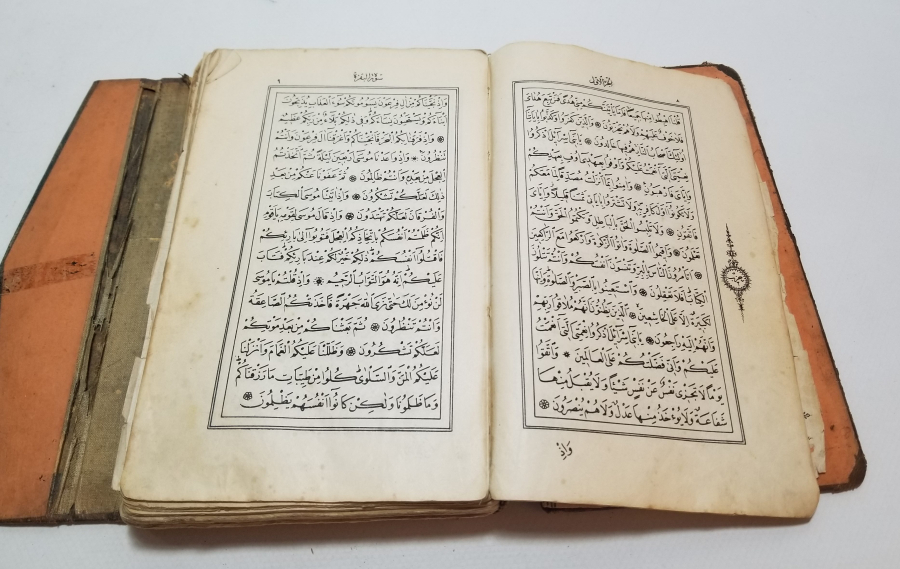 الجزء الاول
٨
قُلْنَا اهْبِطُوا مِنْهَا جَمِيعًا فَاِمَّا يَاْتِيَنَّكُمْ مِنِّي هُدًى فَمَنْ تَبِعَ هُدَايَ
فَلَا خَوْفٌ عَلَيْهِمْ وَلَا هُمْ يَحْزَنُونَ ۞ وَالَّذِينَ كَفَرُوا وَكَذَّبُوا بِاٰيَاتِنَا
اُولٰئِكَ اَصْحَابُ النَّارِ هُمْ فِيهَا خَالِدُونَ ۞ يَا بَنِي اِسْرَائِلَ اذْكُرُوا
نِعْمَتِيَ الَّتِي اَنْعَمْتُ عَلَيْكُمْ وَاَوْفُوا بِعَهْدِي اُوفِ بِعَهْدِكُمْ
وَاِيَّايَ فَارْهَبُونِ ۞ وَاٰمِنُوا بِمَا اَنْزَلْتُ مُصَدِّقًا لِمَا مَعَكُمْ
وَلَا تَكُونُوا اَوَّلَ كَافِرٍ بِهِ وَلَا تَشْتَرُوا بِاٰيَاتِي ثَمَنًا قَلِيلًا وَاِيَّايَ
فَاتَّقُونِ ۞ وَلَا تَلْبِسُوا الْحَقَّ بِالْبَاطِلِ وَتَكْتُمُوا الْحَقَّ وَاَنْتُمْ
تَعْلَمُونَ ۞ وَاَقِيمُوا الصَّلٰوةَ وَاٰتُوا الزَّكٰوةَ وَارْكَعُوا مَعَ الرَّاكِعِينَ
۞ اَتَاْمُرُونَ النَّاسَ بِالْبِرِّ وَتَنْسَوْنَ اَنْفُسَكُمْ وَاَنْتُمْ تَتْلُونَ
الْكِتَابَ اَفَلَا تَعْقِلُونَ ۞ وَاسْتَعِينُوا بِالصَّبْرِ وَالصَّلٰوةِ وَاِنَّهَا
لَكَبِيرَةٌ اِلَّا عَلَى الْخَاشِعِينَ ۞ الَّذِينَ يَظُنُّونَ اَنَّهُمْ مُلَاقُوا رَبِّهِمْ
وَاَنَّهُمْ اِلَيْهِ رَاجِعُونَ ۞ يَا بَنِي اِسْرَائِلَ اذْكُرُوا نِعْمَتِيَ الَّتِي اَنْعَمْتُ
عَلَيْكُمْ وَاَنِّي فَضَّلْتُكُمْ عَلَى الْعَالَمِينَ ۞ وَاتَّقُوا
يَوْمًا لَا تَجْزِي نَفْسٌ عَنْ نَفْسٍ شَيْئًا وَلَا يُقْبَلُ مِنْهَا
شَفَاعَةٌ وَلَا يُؤْخَذُ مِنْهَا عَدْلٌ وَلَا هُمْ يُنْصَرُونَ ۞
وَاِذْ
حزب
سورة البقرة
٩
وَاِذْ نَجَّيْنَاكُمْ مِنْ اٰلِ فِرْعَوْنَ يَسُومُونَكُمْ سُوءَ الْعَذَابِ يُذَبِّحُونَ
اَبْنَاءَكُمْ وَيَسْتَحْيُونَ نِسَاءَكُمْ وَفِي ذٰلِكُمْ بَلَاءٌ مِنْ رَبِّكُمْ عَظِيمٌ
۞ وَاِذْ فَرَقْنَا بِكُمُ الْبَحْرَ فَاَنْجَيْنَاكُمْ وَاَغْرَقْنَا اٰلَ فِرْعَوْنَ وَاَنْتُمْ
تَنْظُرُونَ ۞ وَاِذْ وٰعَدْنَا مُوسٰى اَرْبَعِينَ لَيْلَةً ثُمَّ اتَّخَذْتُمُ
الْعِجْلَ مِنْ بَعْدِهِ وَاَنْتُمْ ظَالِمُونَ ۞ ثُمَّ عَفَوْنَا عَنْكُمْ مِنْ بَعْدِ
ذٰلِكَ لَعَلَّكُمْ تَشْكُرُونَ ۞ وَاِذْ اٰتَيْنَا مُوسَى الْكِتَابَ
وَالْفُرْقَانَ لَعَلَّكُمْ تَهْتَدُونَ ۞ وَاِذْ قَالَ مُوسٰى لِقَوْمِهِ يَا قَوْمِ
اِنَّكُمْ ظَلَمْتُمْ اَنْفُسَكُمْ بِاتِّخَاذِكُمُ الْعِجْلَ فَتُوبُوا اِلٰى بَارِئِكُمْ
فَاقْتُلُوا اَنْفُسَكُمْ ذٰلِكُمْ خَيْرٌ لَكُمْ عِنْدَ بَارِئِكُمْ فَتَابَ
عَلَيْكُمْ اِنَّهُ هُوَ التَّوَّابُ الرَّحِيمُ ۞ وَاِذْ قُلْتُمْ يَا مُوسٰى
لَنْ نُؤْمِنَ لَكَ حَتّٰى نَرَى اللّٰهَ جَهْرَةً فَاَخَذَتْكُمُ الصَّاعِقَةُ
وَاَنْتُمْ تَنْظُرُونَ ۞ ثُمَّ بَعَثْنَاكُمْ مِنْ بَعْدِ مَوْتِكُمْ
لَعَلَّكُمْ تَشْكُرُونَ ۞ وَظَلَّلْنَا عَلَيْكُمُ الْغَمَامَ وَاَنْزَلْنَا
عَلَيْكُمُ الْمَنَّ وَالسَّلْوٰى كُلُوا مِنْ طَيِّبَاتِ مَا رَزَقْنَاكُمْ
وَمَا ظَلَمُونَا وَلٰكِنْ كَانُوا اَنْفُسَهُمْ يَظْلِمُونَ ۞